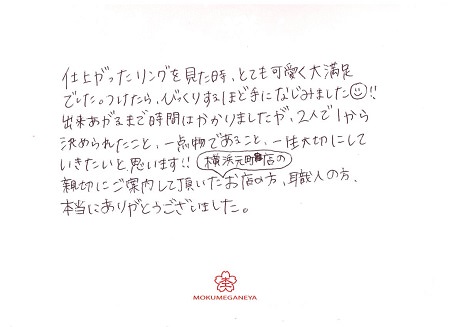 仕上がったリングを見た時、とても可愛く大満足
でした。つけたら、びっくりするほど手になじみました☺!!
出来あがるまで時間はかかりましたが、2人で1から
決められたこと、一点物であること、一生大切にして
いきたいと思います!!
横浜元町店の
親切にご案内して頂いたお店の方、職人の方、
本当にありがとうございました。
MOKUMEGANEYA